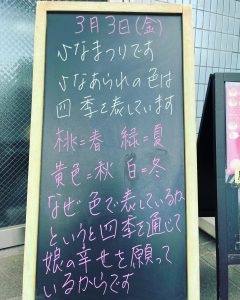 3月3日(金)
ひなまつりです
ひなあられの色は
四季を表しています
桃=春 緑=夏
黄色=秋 白=冬
なぜ色で表しているか
というと四季を通じて
娘の幸せを願って
いるからです